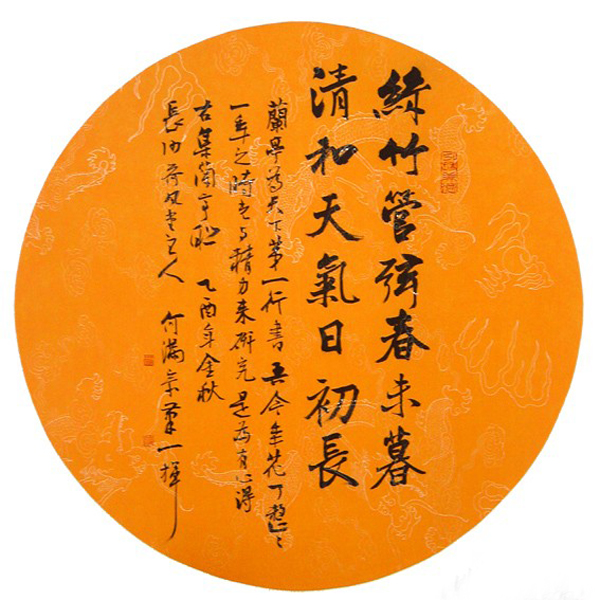 絲竹管弦春未暮
清和天氣日初長
蘭亭為天下第一行書 吾今年花了整
一年之時光与精力来研究 是為有心得
古集蘭亭聯 乙酉年金秋
長白 人 何滿宗 筆一揮